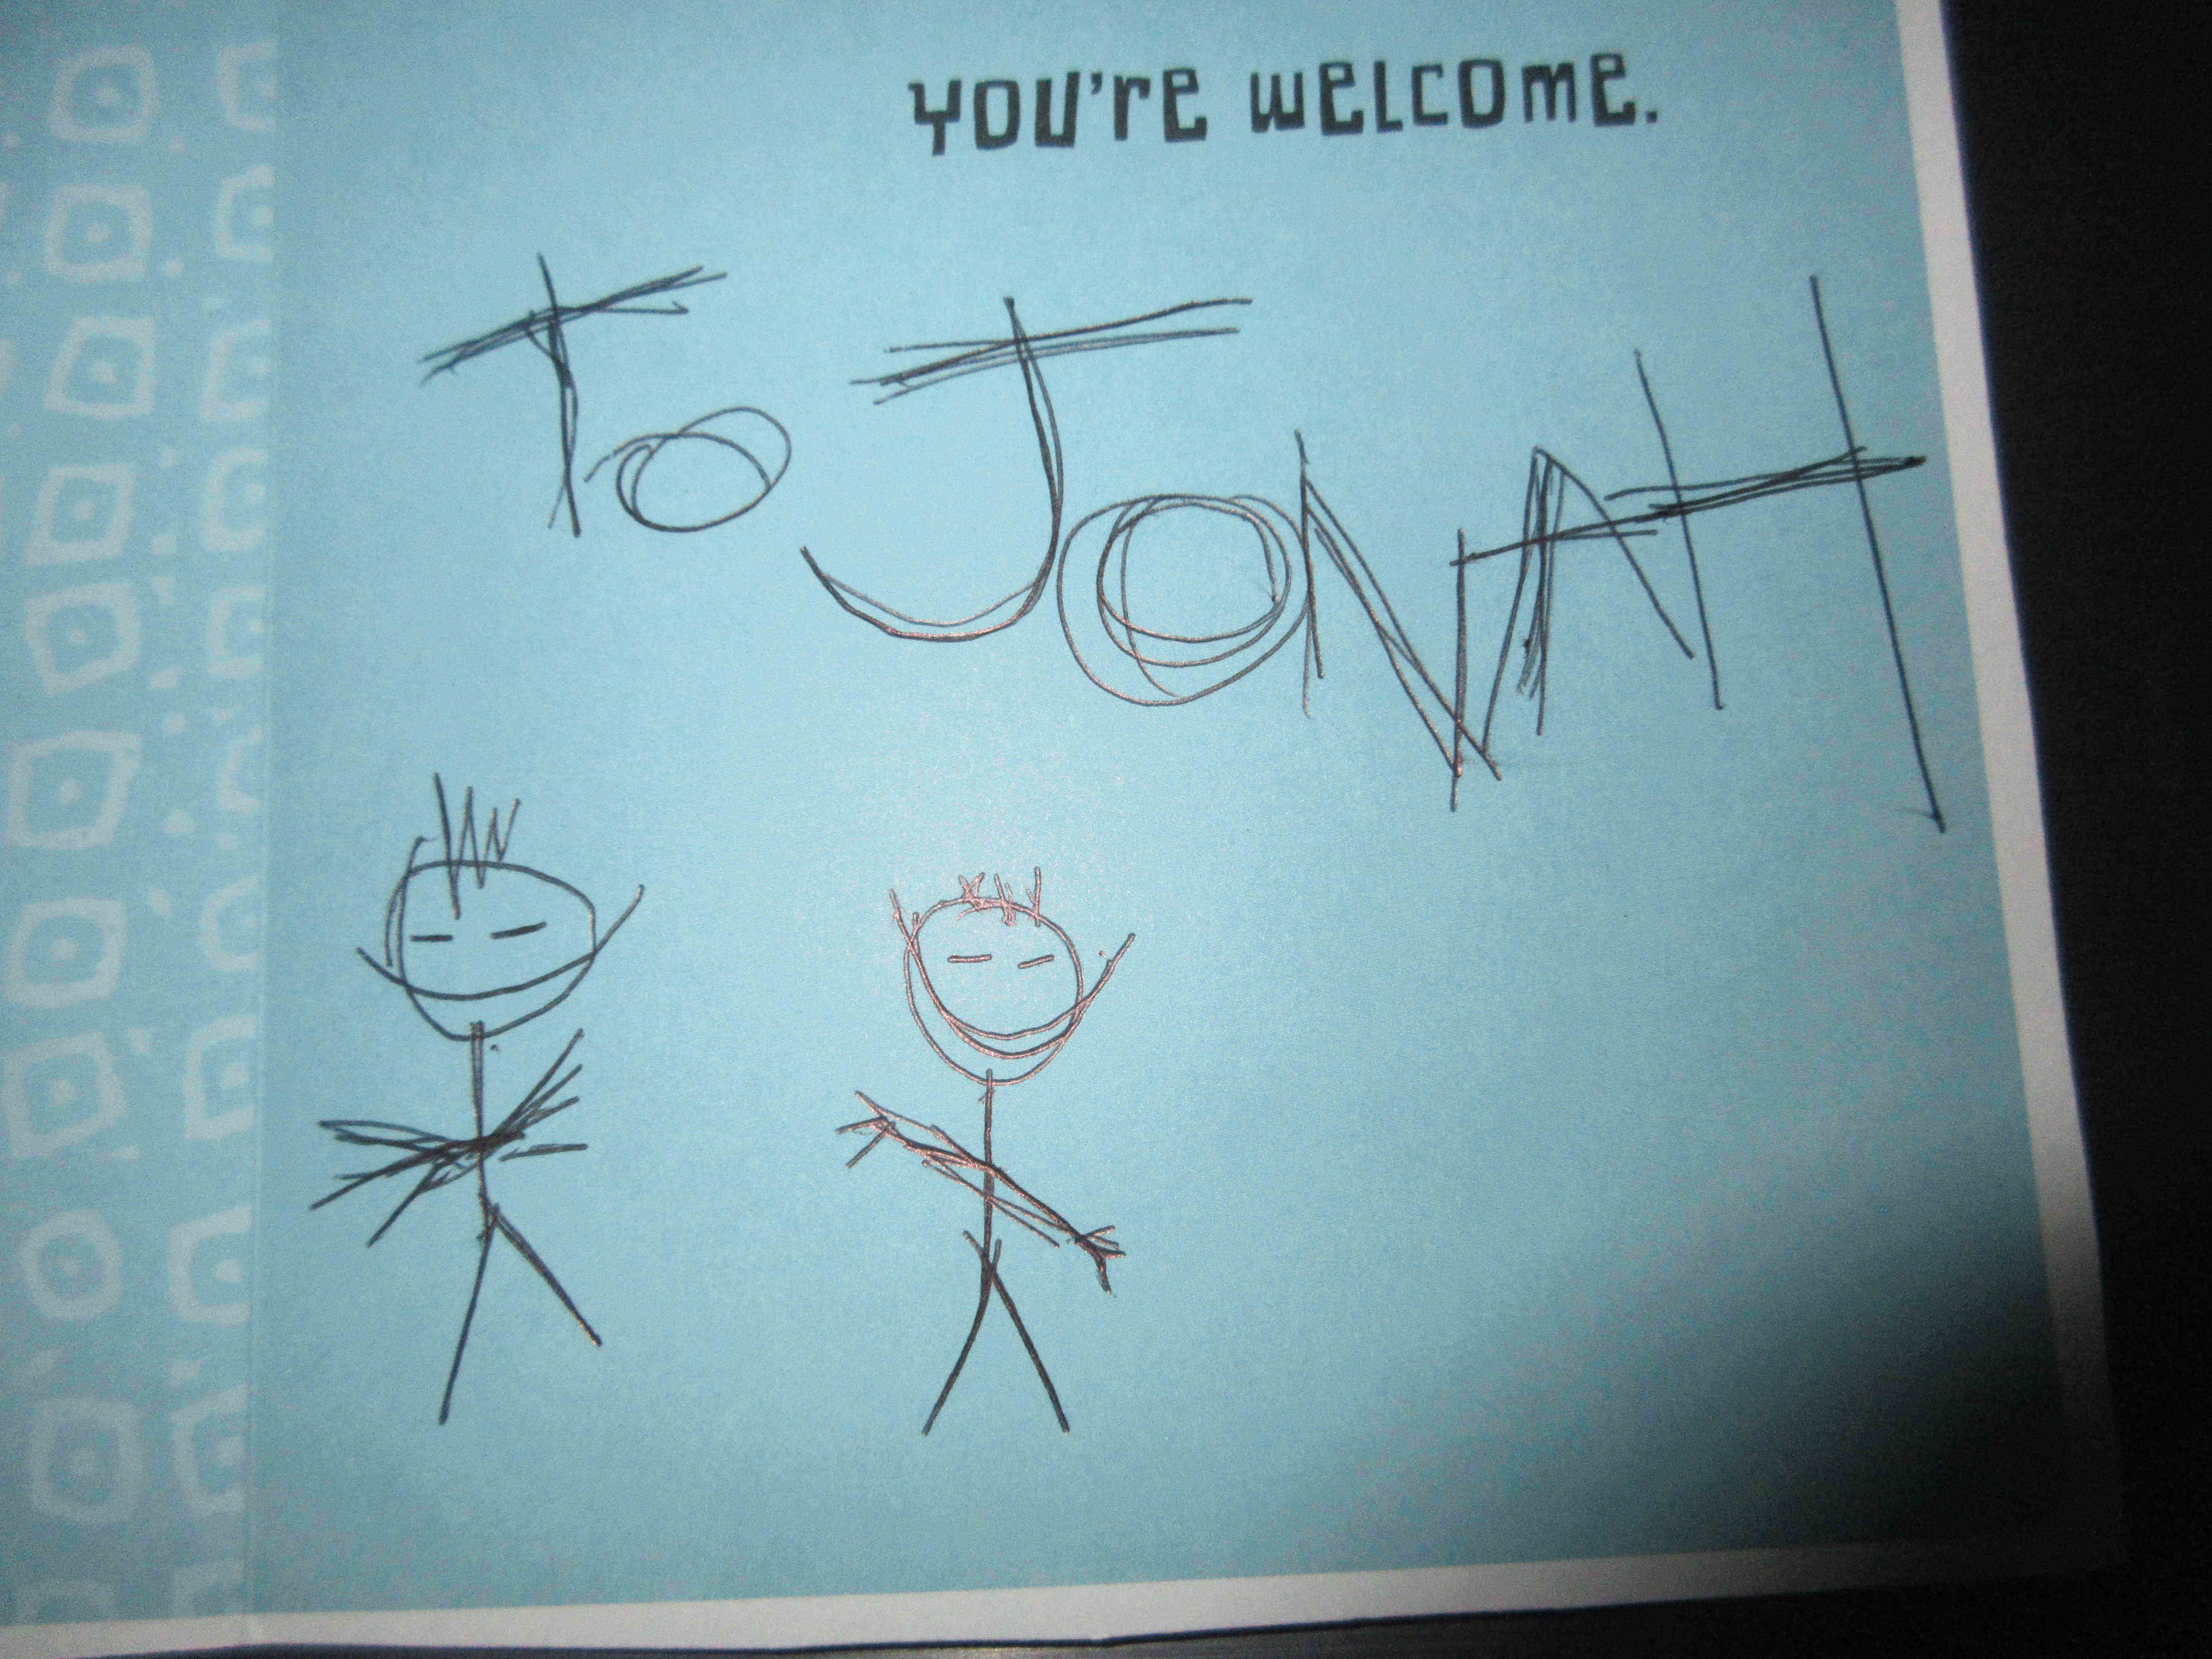 YOU'RE WELCOME.
To JONAH